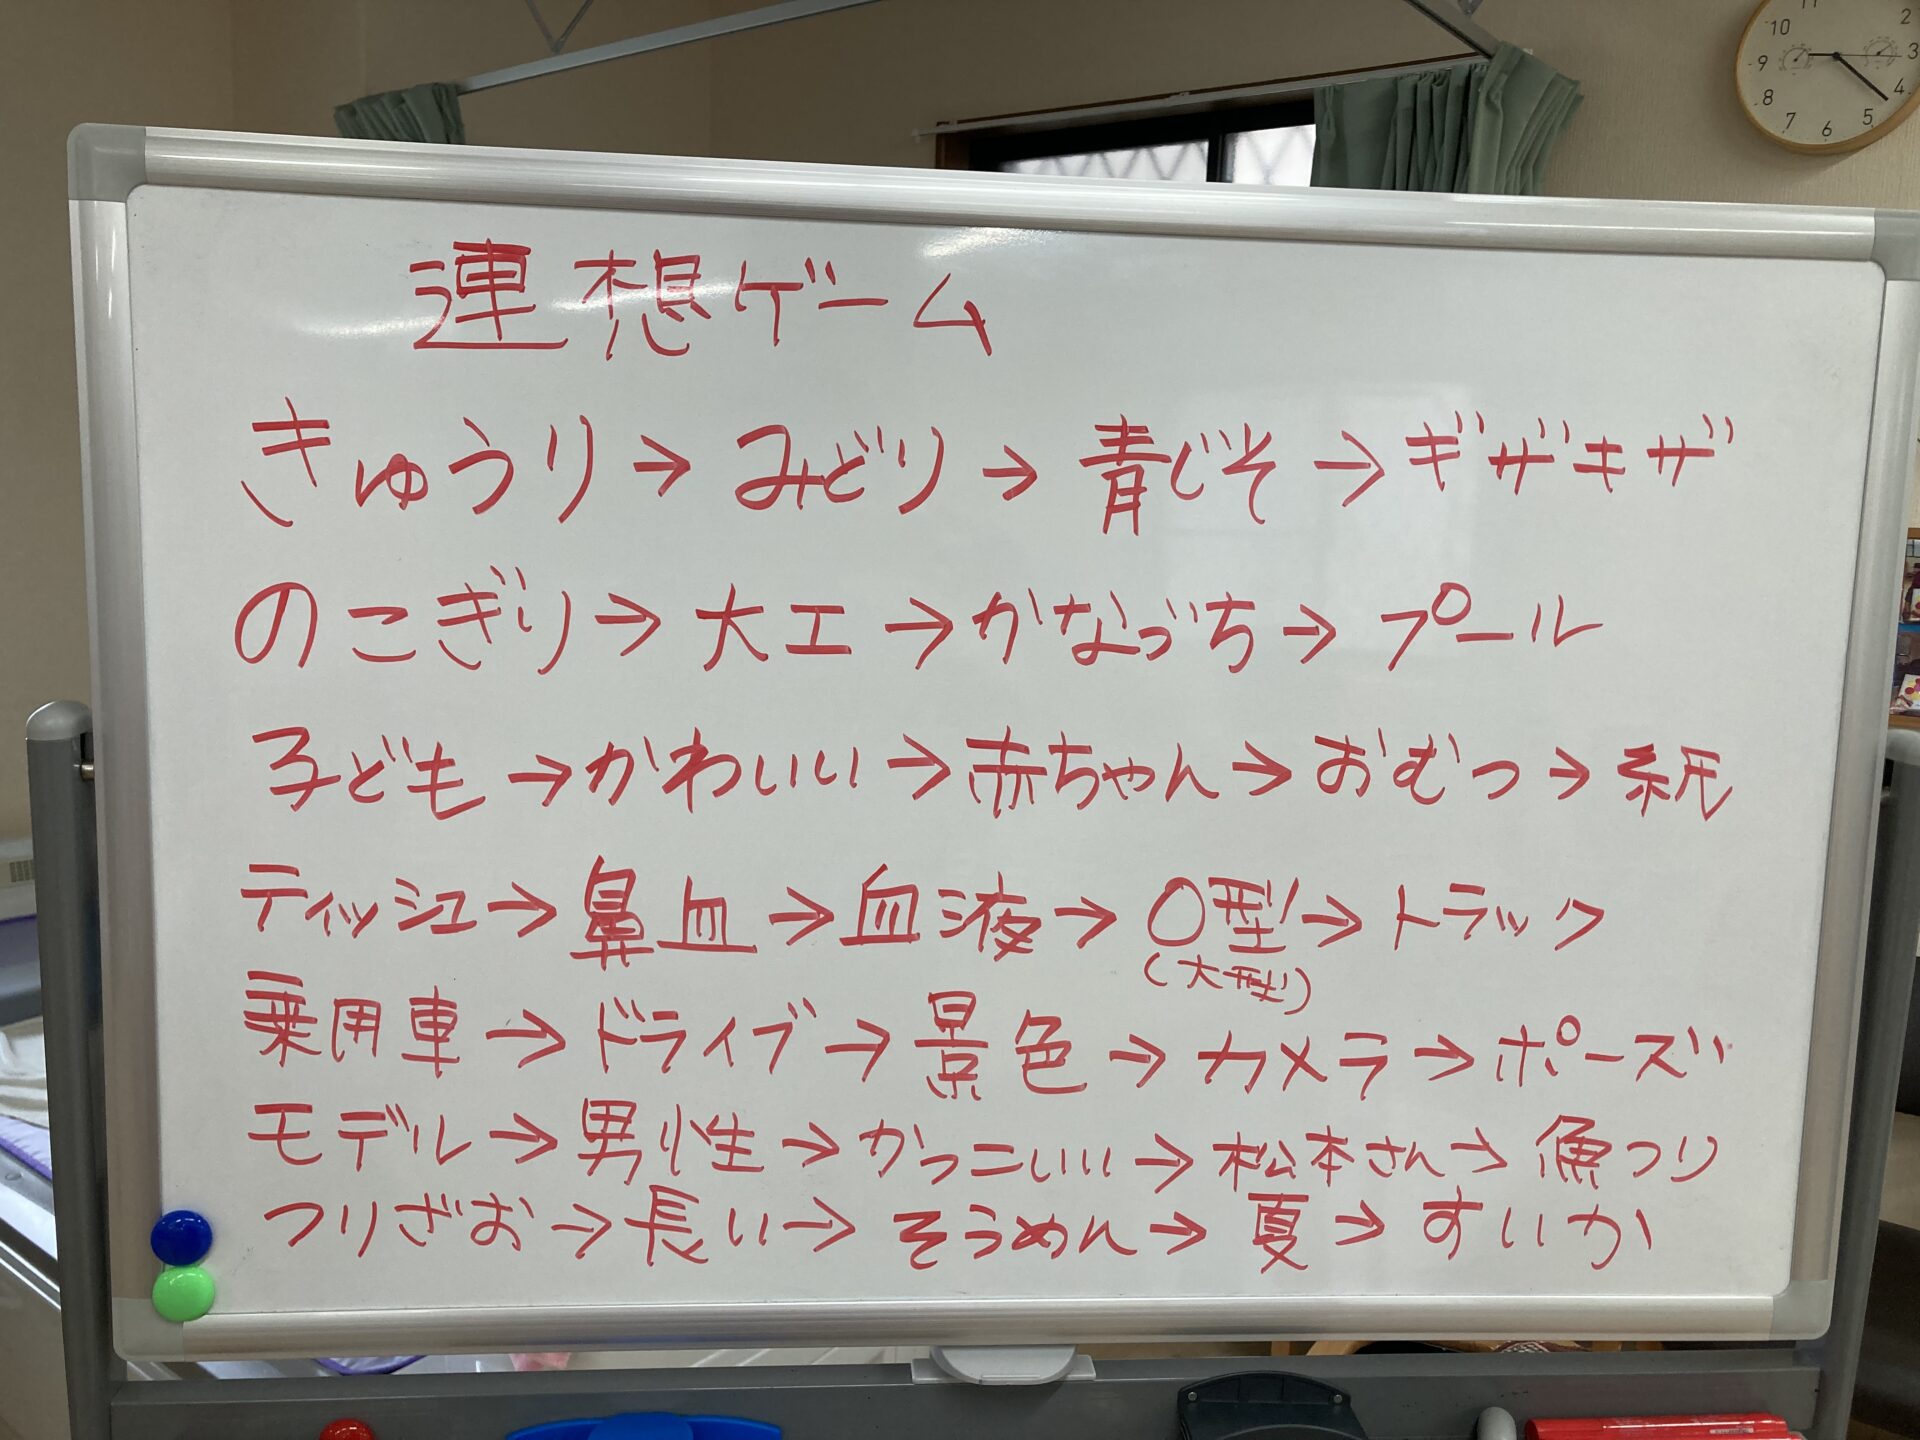 連想ゲーム
きゅうり→みどり→青じそ→ギザギザ
のこぎり→大工→かなづち→プール
子ども→かわいい→赤ちゃん→おむつ→紙
ティッシュ→鼻血→血液→O型→トラック
(大型)
乗用車→ドライブ→景色→カメラ→ポーズ
モデル→男性→かっこいい→松本さん→魚つり
つりざお→長い→そうめん→夏→すいか
11 2
10 3
9 4
8 5
7 6